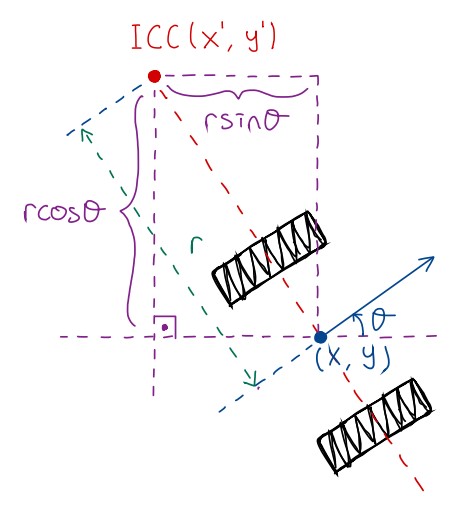 ICC(x', y')
rsinθ
rcosθ
r
θ
(x, y)